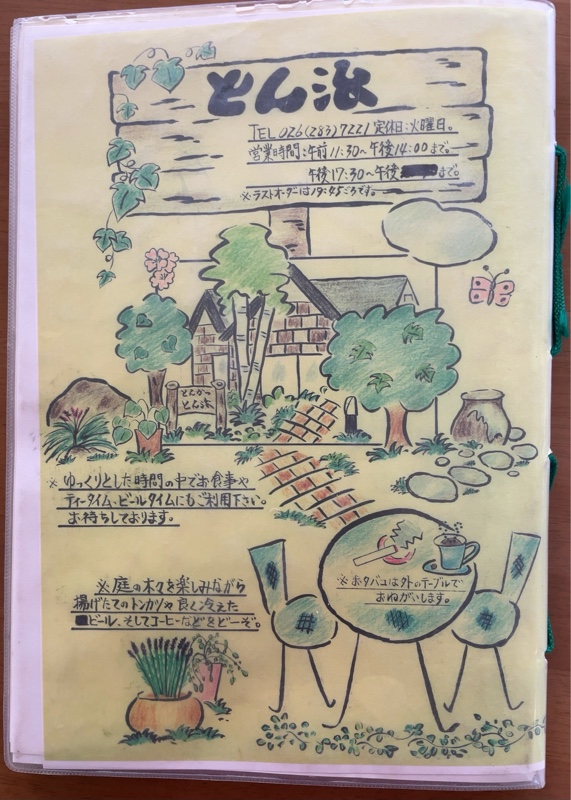 とん波
TEL 026(283)7221 定休日:火曜日。
営業時間:午前11:30〜午後14:00まで。
午後17:30〜午後 まで。
※ラストオーダーは19:45ごろです。
とんかつ
とん波
※ ゆっくりとした時間の中でお食事や
ティータイム、ビールタイムにもご利用下さい。
お待ちしております。
※おタバコは外のテーブルで
おねがいします。
※庭の木々を楽しみながら
揚げたてのトンカツや良く冷えた
ビール、そしてコーヒーなどをどーぞ。